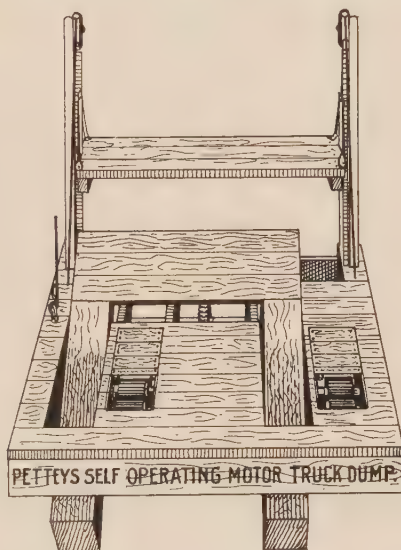 PETTEYS SELF OPERATING MOTOR TRUCK DUMP.